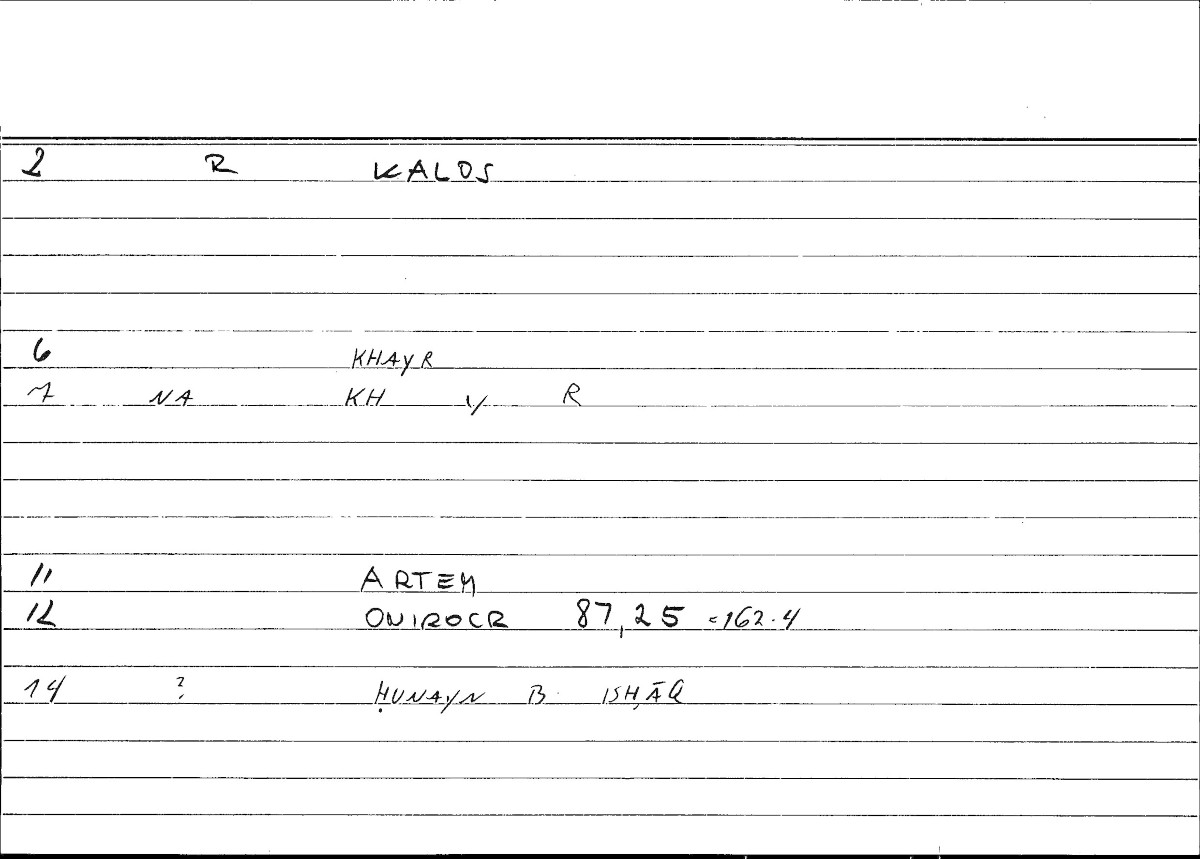 2 R KALOS
6 KHAYR
7 NA KH Y R
11 ARTEM
12 ONIROCR 87,25 =162.4
14 ? ḤUNAYN B. ISḤĀQ